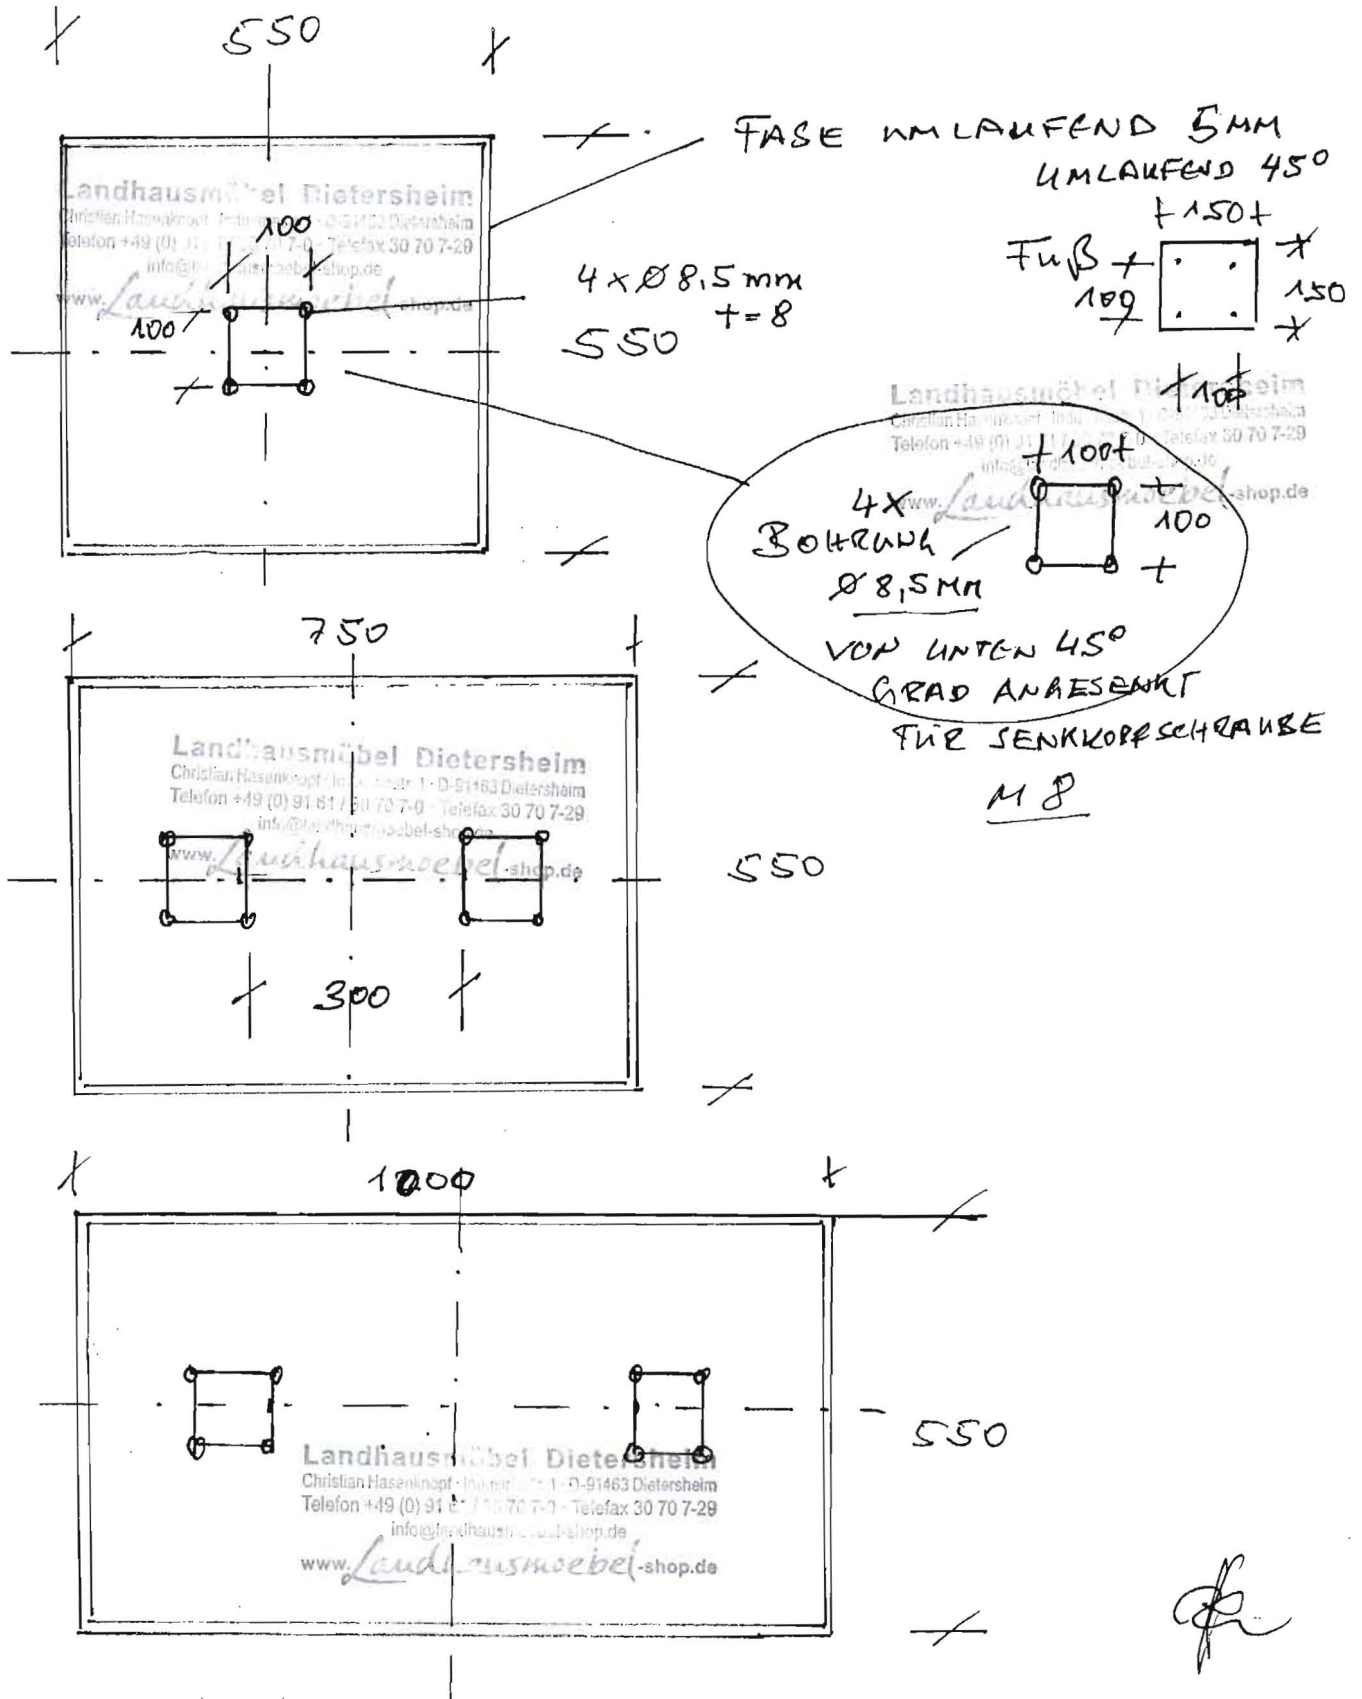 550
FASE UMLAUFEND 5MM
UMLAUFEND 45°
150
Fuß
100
150
100
Landhausmöbel Dietersheim
Telefon
Telefax 30 70 7-29
www. Landhausmoebel-shop.de
100
100
4 x Ø 8,5 mm
t=8
550
Landhausmöbel Dietersheim
Telefon +49 (0)
Telefax 30 70 7-29
www. Landhausmoebel-shop.de
100
100
4X
BOHRUNG
Ø 8,5MM
VON UNTEN 45°
GRAD ANGESENKT
FÜR SENKKOPFSCHRAUBE
M 8
750
Landhausmöbel Dietersheim
Christian Hasenknopf · 1 · D-91463 Dietersheim
Telefon +49 (0) 91 61 / 30 70 7-0 · Telefax 30 70 7-29
info@landhausmoebel-shop.de
www. Landhausmoebel-shop.de
550
300
1000
550
Landhausmöbel Dietersheim
Christian Hasenknopf · 1 · D-91463 Dietersheim
Telefon +49 (0) 91 61 / 30 70 7-0 · Telefax 30 70 7-29
info@landhausmoebel-shop.de
www. Landhausmoebel-shop.de